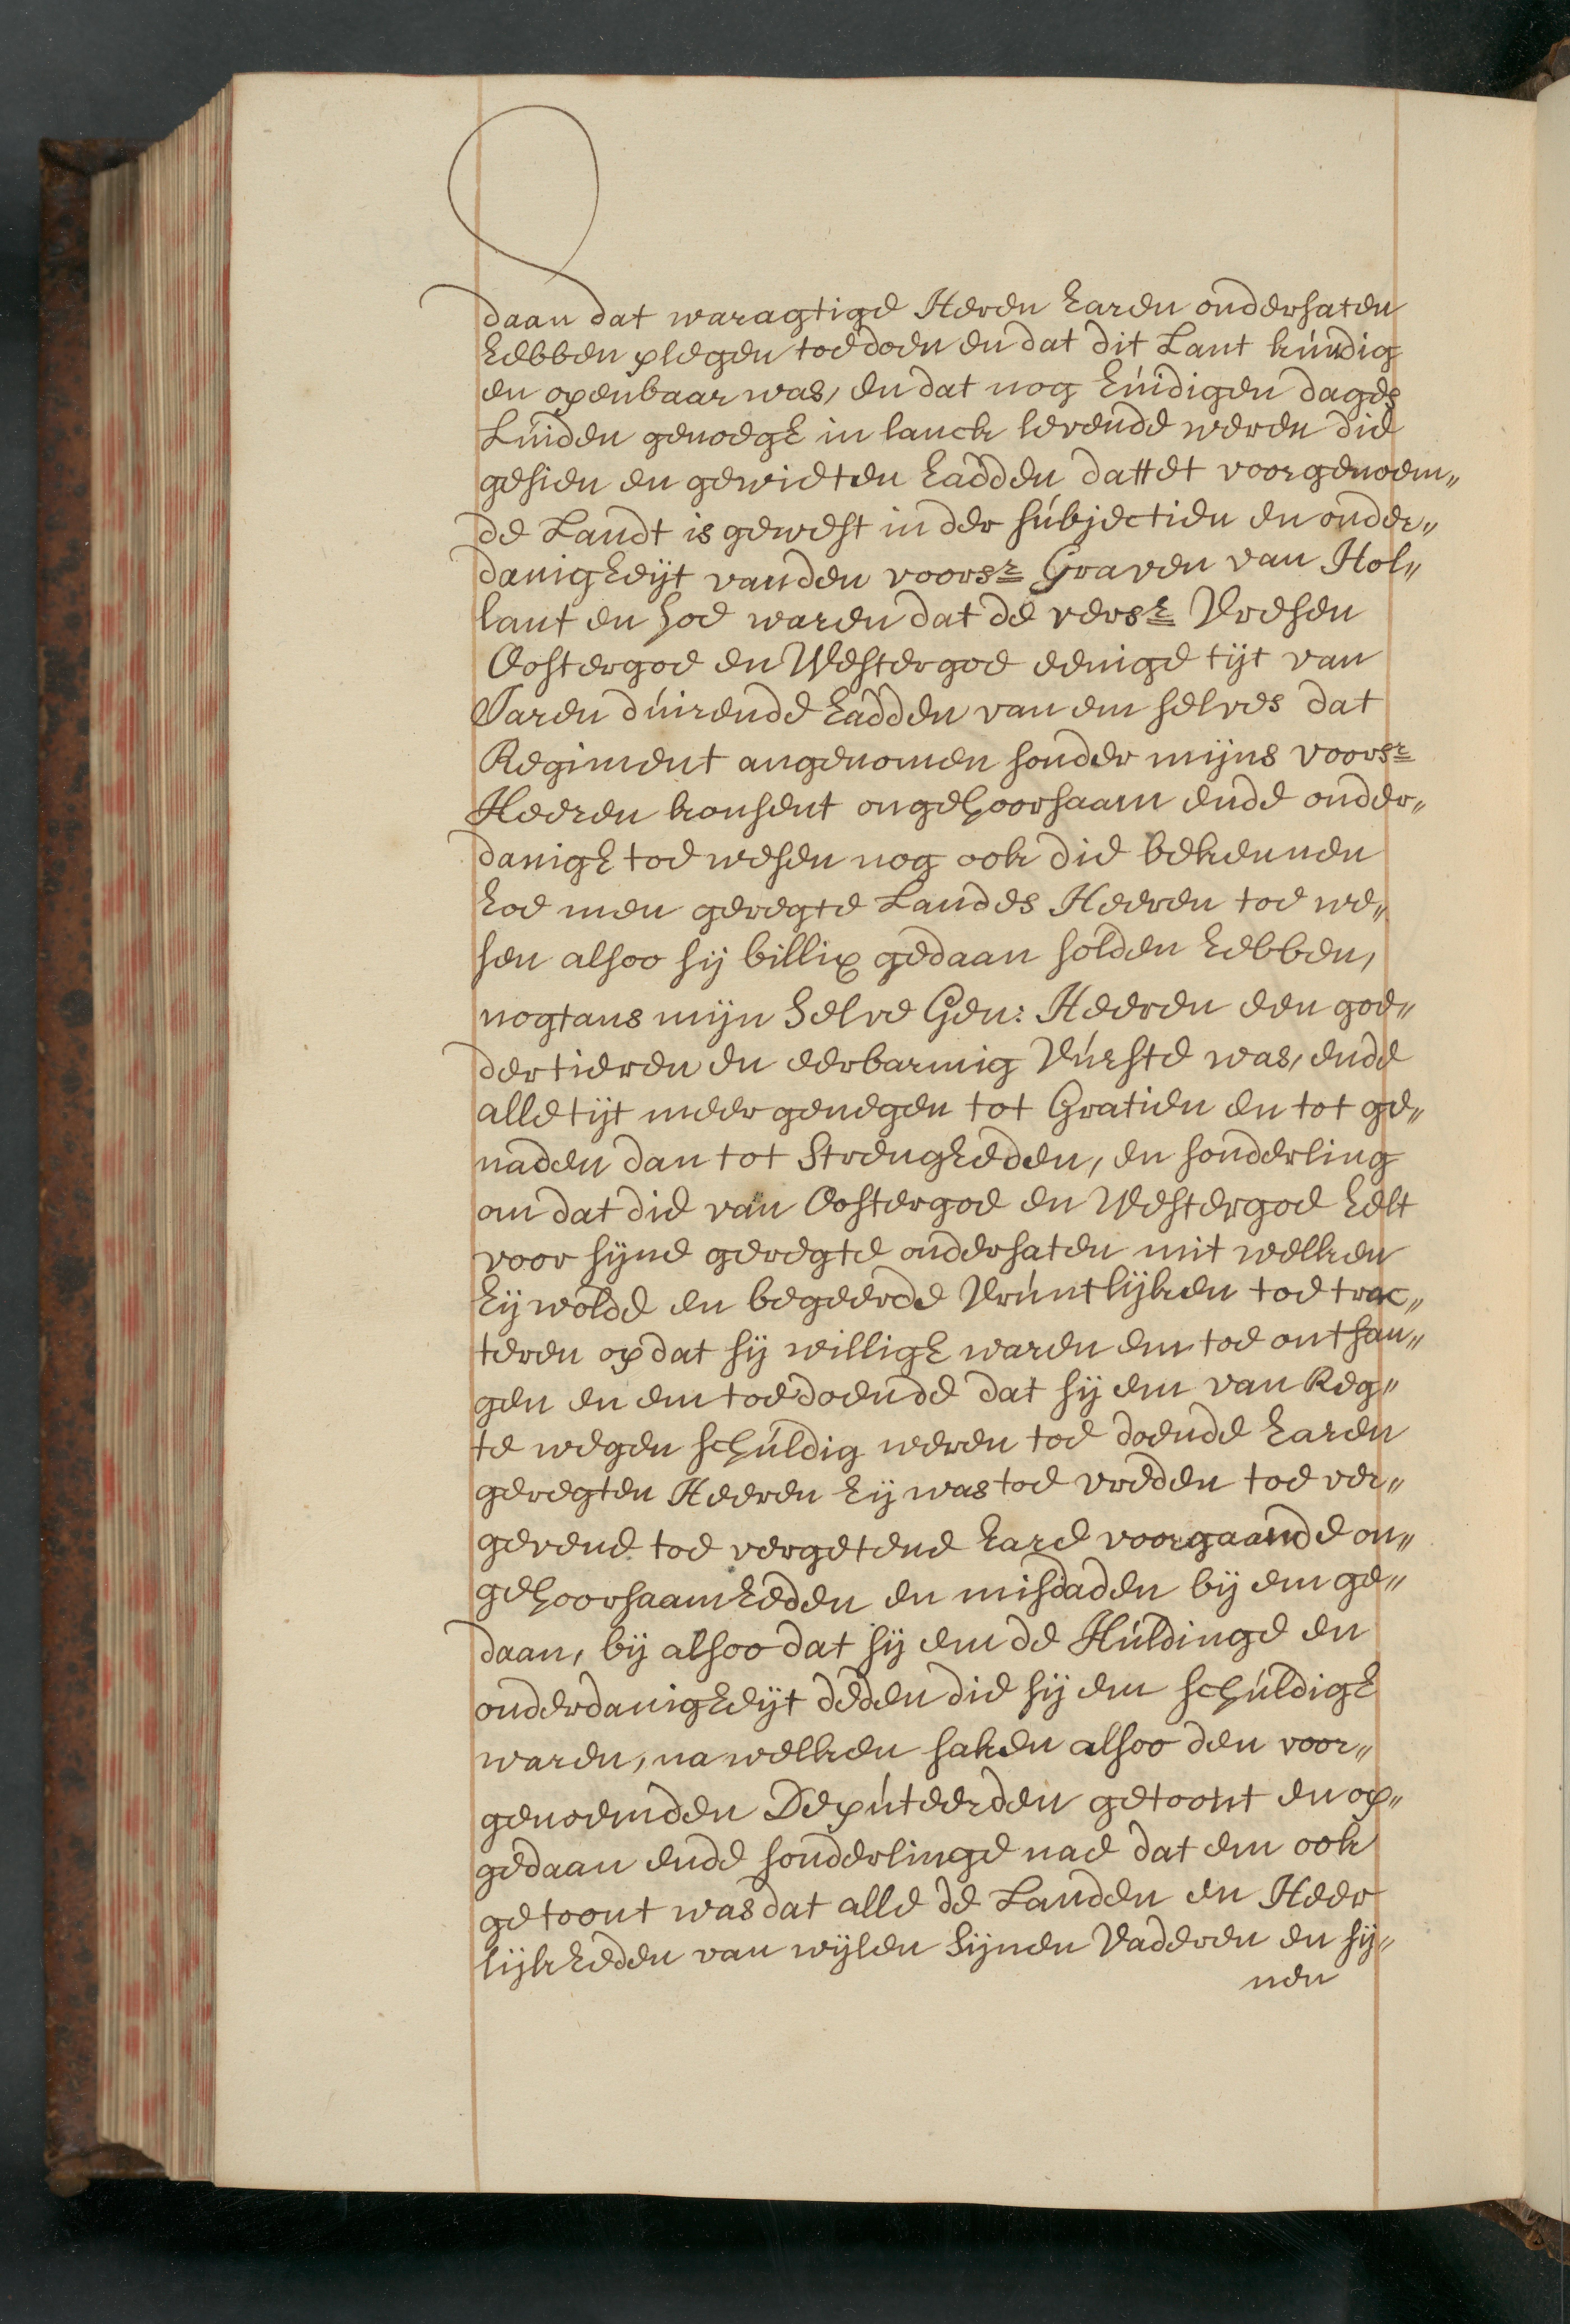 daan dat waragtige Heren haren ondersaten
hebben plegen toe doen en dat dit Lant kúndig
en openbaar was, en dat nog húidigen dages
Lúiden genoegh in lanck levende weren die
gesien en gewieten hadden dattet voorgenoem„
de Landt is gewest in der súbjectien en onder„
danigheijt vanden voorsr Graven van Hol„
lant en hoe waren dat de versr Vresen
Oostergoe en Westergoe eenige tijt van
Jaren dúirende hadden van em selves dat
Regiment angenomen sonder mijns voorsr
Heeren konsent ongehoorsaam ende onder„
danigh toe wesen nog ook die bekennen
hoe men geregte Landes Heeren toe we„
sen alsoo sij billix gedaan solden hebben,
nogtans mijn Selve Gen: Heeren een goe„
dertieren en eerbarmig Vúrste was, ende
alle tijt meer genegen tot Gratien en tot ge„
naden dan tot Strengheden, en sonderling
om dat die van Oostergoe en Westergoe helt
voor sijne geregte ondersaten mit welken
hij wolde en begeerde Vrúntlijken toe trac„
teren op dat sij willigh waren em toe ontfan„
gen en em toe doende dat sij em van Reg„
te wegen schúldig weren toe doende haren
geregten Heeren hij was toe vreden toe ver„
gevene toe vergetene hare voorgaande on„
gehoorsaamheden en misdaden bij em ge„
daan, bij alsoo dat sij em de Húldinge en
onderdanigheijt deden die sij em schúldigh
waren, na welken saken alsoo den voor„
genoemden Depúteerden getoont en op„
gedaan ende sonderlinge nae dat em ook
getoont was dat alle de Landen en Heer
lijkheden van wijlen Sijnen Vaderen en sij„
nen